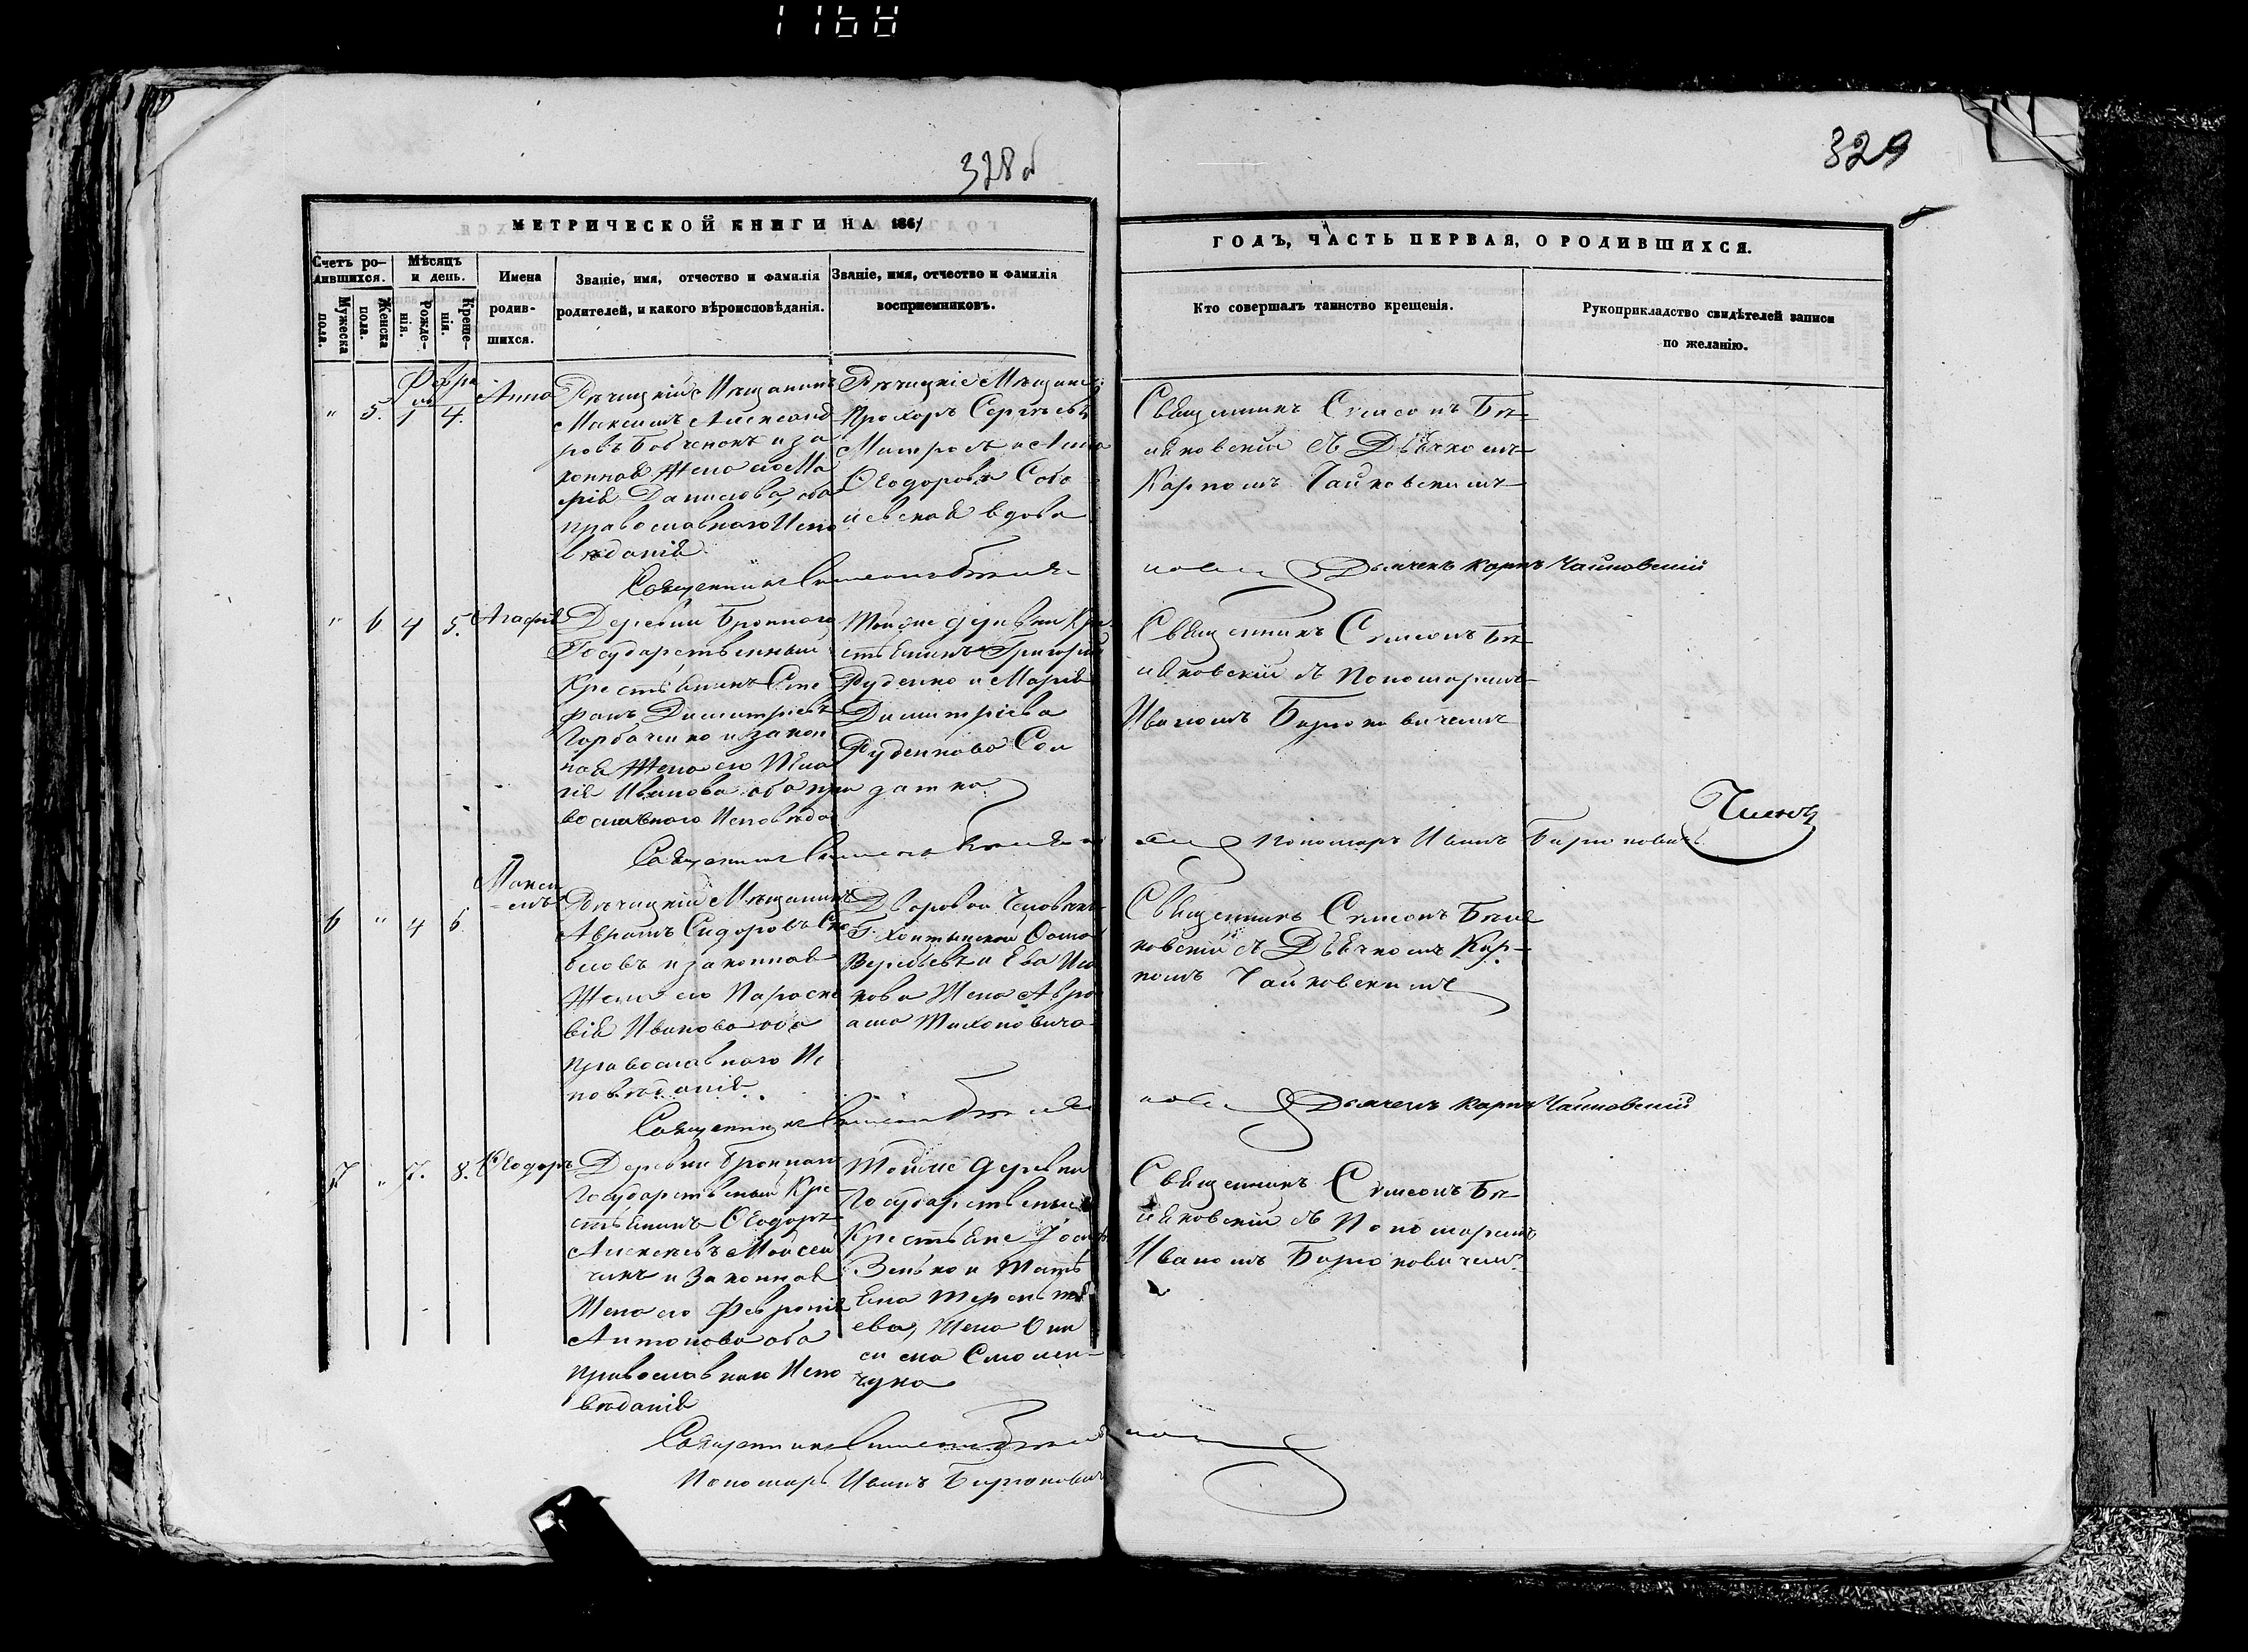 1168
328 об
329
МЕТРИЧЕСКОЙ КНИГИ НА 1861
ГОДЪ, ЧАСТЬ ПЕРВАЯ, О РОДИВШИХСЯ.
Счетъ ро-
дившихся.
Мужеска
пола.
Женска
пола.
Мѣсяцъ
и день.
Рожде-
нія.
Креще-
нія.
Имена
родив-
шихся.
Званіе, имя, отчество и фамилія
родителей, и какого вѣроисповѣданія.
Званіе, имя, отчество и фамилія
восприемниковъ.
Кто совершалъ таинство крещенія.
Рукоприкладство свидѣтелей записи
по желанію.
" 5. 1 4.
Анна
Рѣчицкій Мѣщанинъ
Максимъ Александ
ровъ и за
конная Жена его Ма
рія Данилова, оба
православнаго Испо
вѣданія
Рѣчицкіе Мѣщане:
Прохоръ Сергѣевъ
и Анна
Ѳеодорова
вдова
Священникъ Симеонъ Бѣ
ляновскій съ Дьячкомъ
Карпомъ Чайковскимъ
Священникъ Симеонъ
Дьячекъ Карпъ Чайковскій
" 6 4 5.
Агафія
Деревни Броннаго
Государственный
Крестьянинъ Сте
фанъ Димитріевъ
Горбаченко и закон
ная Жена его Пела
гія Иванова оба пра
вославнаго Исповѣда
Тойже деревни Кре
стьянинъ Григорій
Руденко и Марія
Димитріева
Руденкова Сол
датка
Священникъ Симеонъ Бѣ
ляновскій съ Пономаремъ
Иваномъ Бирюковичемъ
Священникъ Симеонъ
Пономарь Иванъ Бирюковичъ
6 " 4 6
Макси
мъ
Рѣчицкій Мѣщанинъ
Аврамъ Сидоровъ
и законная
Жена его Параске
вія Иванова оба
православнаго Ис
повѣданія.
Дворовый Человѣкъ
Г.
и Ева
кова Жена Авра
ама Тихоновича
Священникъ Симеонъ Бѣля
новскій съ Дьячкомъ Кар-
помъ Чайковскимъ
Священникъ Симеонъ
Дьячекъ Карпъ Чайковскій
7 " 7. 8.
Ѳеодоръ
Деревни Броннаго
Государственный Кре
стьянинъ Ѳеодоръ
Алексѣевъ Моисеи
чикъ и Законная
Жена его Февронія
Антонова оба
православнаго Испо
вѣданія
Тойже деревни
Государственные
Крестьяне
Зенько и Тать
яна Терентъ
ева, Жена Они
сима Смолен-
чука
Священникъ Симеонъ Бѣ
ляновскій съ Пономаремъ
Иваномъ Бирюковичемъ
Священникъ Симеонъ
Пономарь Иванъ Бирюковичъ